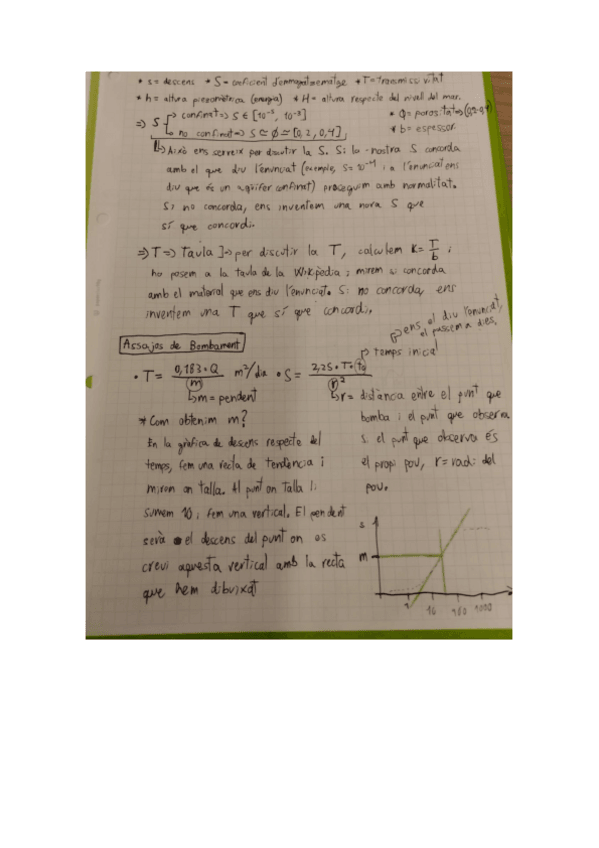 * s = descens * S = coeficient d'emmagatzematge * T = Transmissivitat
* h = altura piezomètrica (energia) * H = altura respecte del nivell del mar.
=> S confinat => S ∈ [10⁻⁵, 10⁻³] * φ = porositat => (0,2-0,4)
no confinat => S ≃ φ ≃ [0,2, 0,4] * b = espessor.
↳ Això ens serveix per discutir la S. Si la nostra S concorda
amb el que diu l'enunciat (exemple, S = 10⁻⁴ i a l'enunciat ens
diu que és un aqüífer confinat) prosseguim amb normalitat.
Si no concorda, ens inventem una nova S que
sí que concordi.
=> T => Taula ]→ per discutir la T, calculem K = T/b i
ho posem a la taula de la Wikipèdia i mirem si concorda
amb el material que ens diu l'enunciat. Si no concorda, ens
inventem una T que sí que concordi.
Assajos de Bombament
ens el diu l'enunciat,
el passem a dies.
temps inicial
• T = 0,183 · Q / m m²/dia • S = 2,25 · T · t₀ / r²
↳ m = pendent
↳ r = distància entre el punt que
bomba i el punt que observa
si el punt que observa és
el propi pou, r = radi del
pou.
* Com obtenim m?
En la gràfica de descens respecte del
temps, fem una recta de tendència i
mirem on talla. Al punt on talla li
sumem 10 i fem una vertical. El pendent
serà el descens del punt on es
creui aquesta vertical amb la recta
que hem dibuixat
s
m
1 10 100 1000